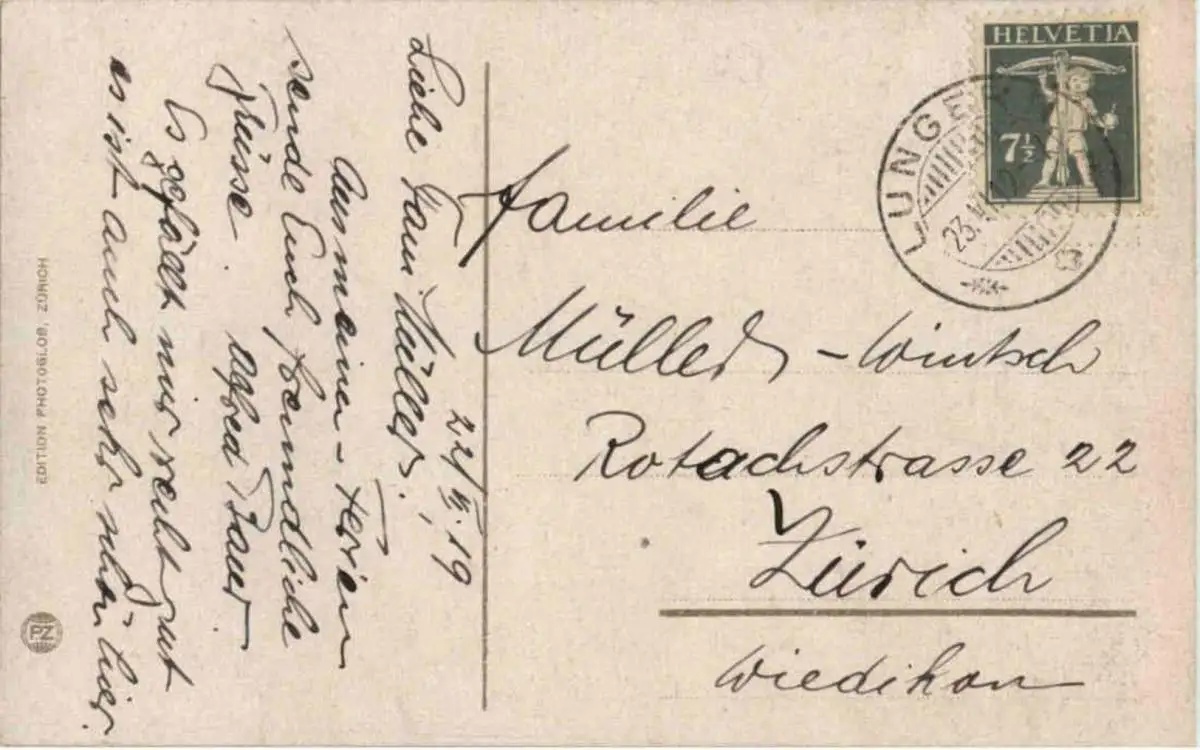 22/ 19
Liebe Fam. Müller.
Aus meinen Ferien
sende Euch freundliche
Grüsse. Alfred Bauer
Es gefällt mir recht gut
es ist auch sehr schön hier.
EDITION PHOTOGLOB, ZÜRICH
PZ
HELVETIA
7½
LUNGERN
23.
Familie
Müller-Wintsch
Rotachstrasse 22
Zürich
Wiedikon